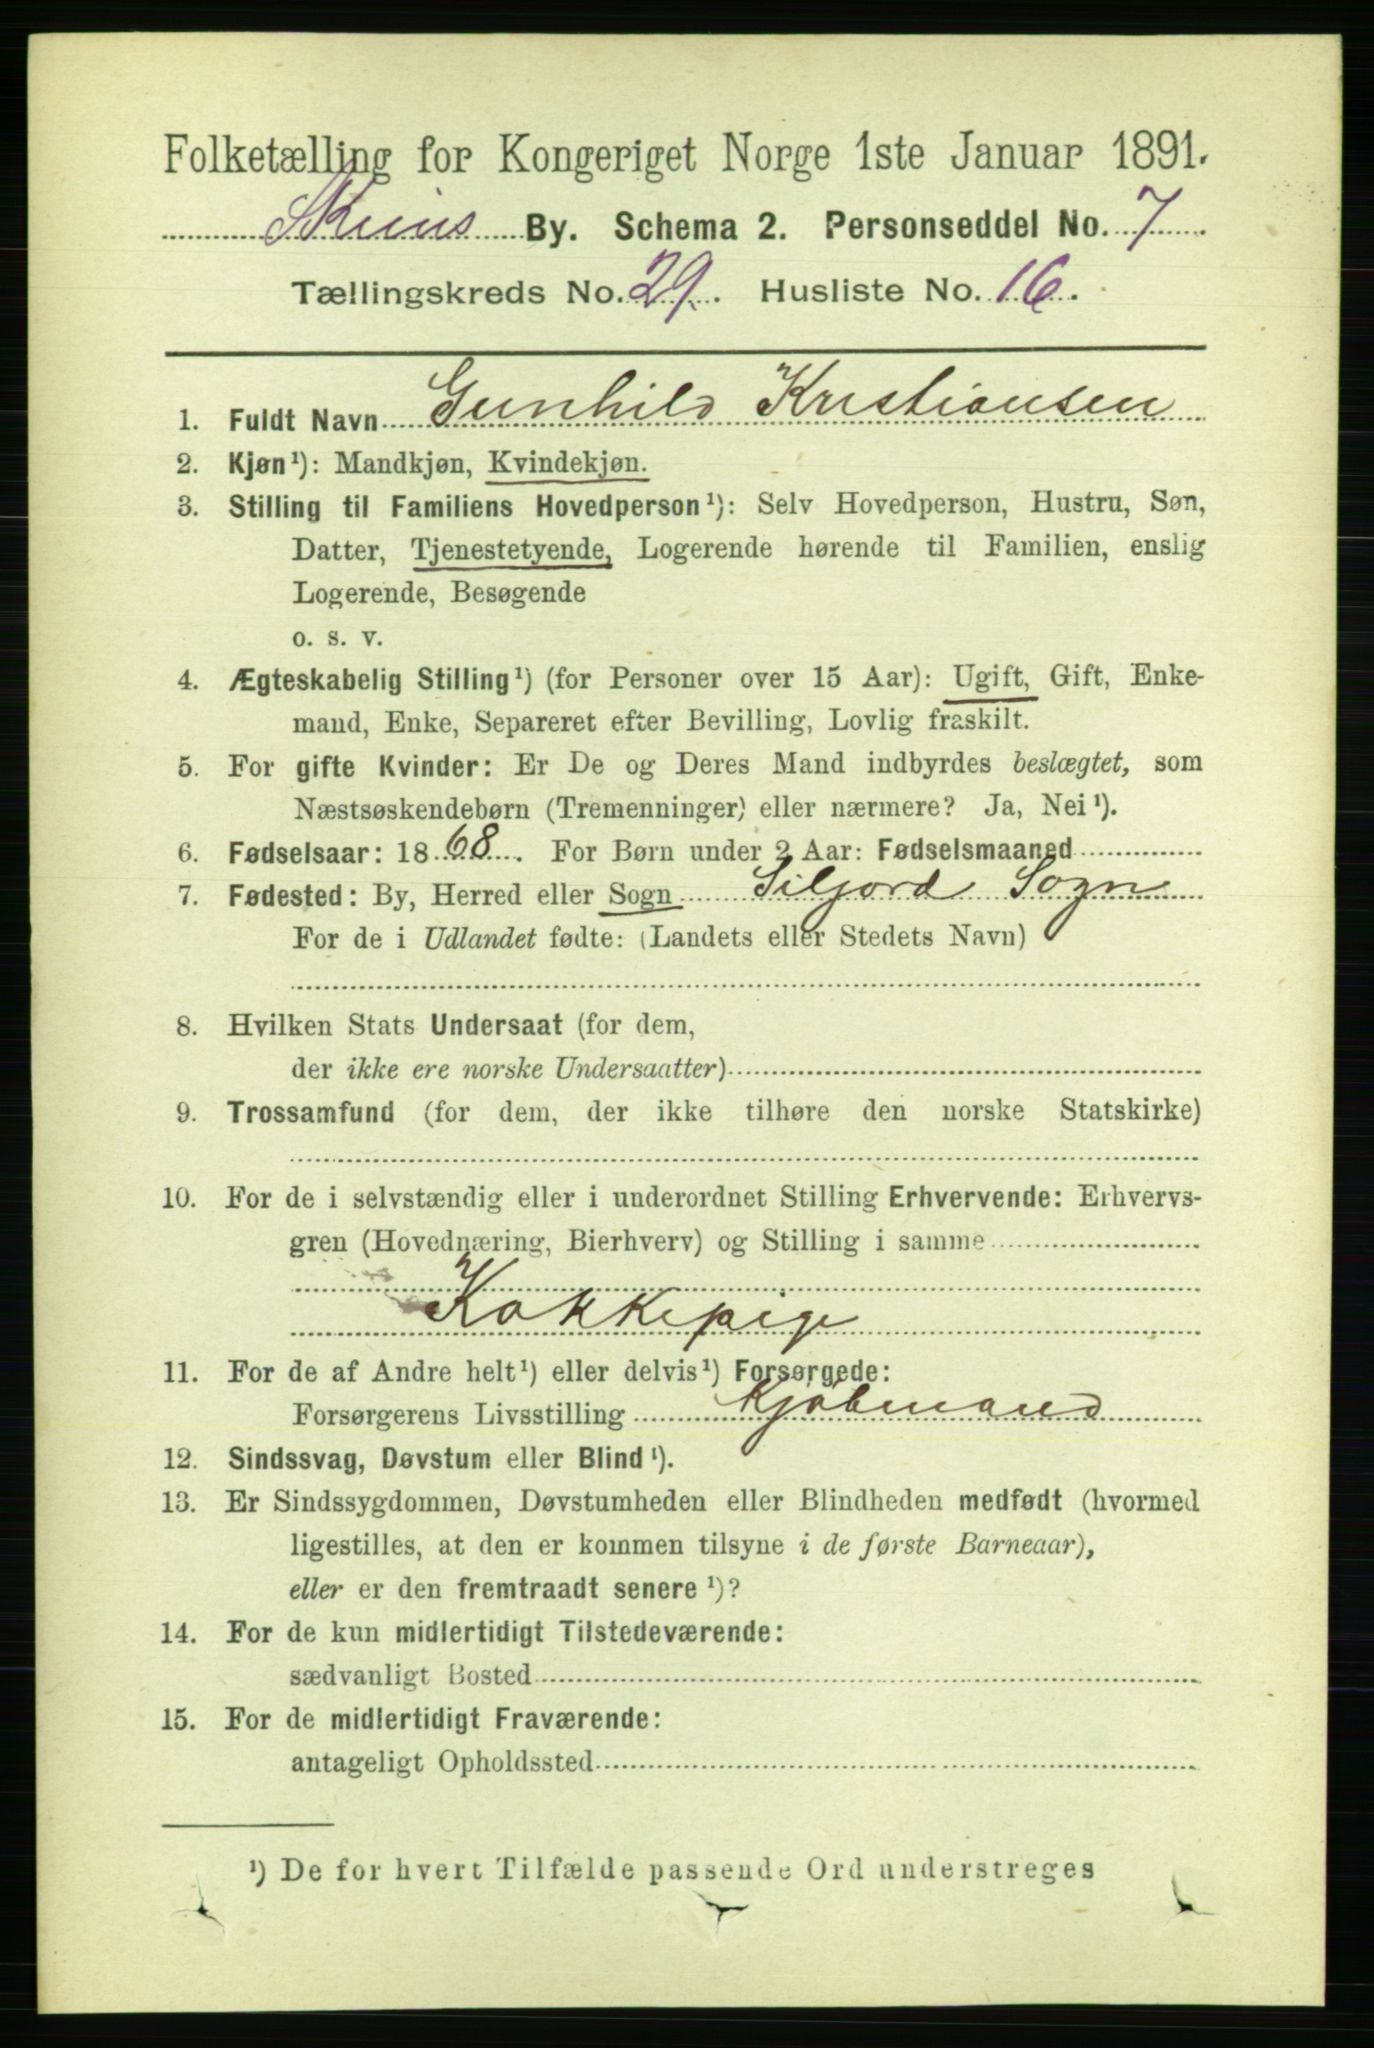 Folketælling for Kongeriget Norge 1ste Januar 1891.
Skiens By. Schema 2. Personseddel No. 7
Tællingskreds No. 29. Husliste No. 16.
1. Fuldt Navn Gunhild Kristiansen
2. Kjøn¹): Mandkjøn, Kvindekjøn.
3. Stilling til Familiens Hovedperson¹): Selv Hovedperson, Hustru, Søn,
Datter, Tjenestetyende, Logerende hørende til Familien, enslig
Logerende, Besøgende
o. s. v.
4. Ægteskabelig Stilling¹) (for Personer over 15 Aar): Ugift, Gift, Enke-
mand, Enke, Separeret efter Bevilling, Lovlig fraskilt.
5. For gifte Kvinder: Er De og Deres Mand indbyrdes beslægtet, som
Næstsøskendebørn (Tremenninger) eller nærmere? Ja, Nei¹).
6. Fødselsaar: 1868. For Børn under 2 Aar: Fødselsmaaned
7. Fødested: By, Herred eller Sogn Siljord Sogn
For de i Udlandet fødte: (Landets eller Stedets Navn)
8. Hvilken Stats Undersaat (for dem,
der ikke ere norske Undersaatter)
9. Trossamfund (for dem, der ikke tilhøre den norske Statskirke)
10. For de i selvstændig eller i underordnet Stilling Erhvervende: Erhvervs-
gren (Hovednæring, Bierhverv) og Stilling i samme
Kokkepige
11. For de af Andre helt¹) eller delvis¹) Forsørgede:
Forsørgerens Livsstilling Kjøbmand
12. Sindssvag, Døvstum eller Blind¹).
13. Er Sindssygdommen, Døvstumheden eller Blindheden medfødt (hvormed
ligestilles, at den er kommen tilsyne i de første Barneaar),
eller er den fremtraadt senere¹)?
14. For de kun midlertidigt Tilstedeværende:
sædvanligt Bosted
15. For de midlertidigt Fraværende:
antageligt Opholdssted
¹) De for hvert Tilfælde passende Ord understreges